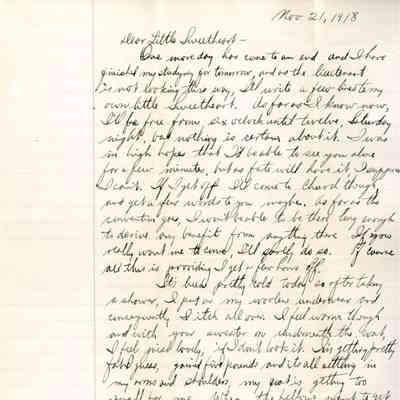 Nov 21, 1918
Dear Little Sweetheart -
One more day has come to an end and I have
finished my studying for tomorrow, and as the lieutenant
is not looking this way, I'll write a few lines to my
own little Sweetheart. As far as I know now,
I'll be free from six oclock until twelve, Saturday
night, but nothing is certain about it. I was
in high hopes that I'd be able to see you alone
for a few minutes, but as fate will have it, I suppose
I can't. If I get off I'll come to Church though
and get a few words to you maybe. As far as the
convention goes, I won't be able to be there long enough
to derive any benefit from anything there. If you
really want me to come, I'll surely do so. Of course
all this is providing I get a few hours off.
It's been pretty cold today so after taking
a shower, I put on my woolen underwear and
consequently I itch all over. I feel warm though
and with your sweater on underneath the coat,
I feel fixed lovely, if I don't look it. I'm getting pretty
fat I guess, gained five pounds, and its all settling in
my arms and shoulders, my coat is getting too
small for me. When the fellows want to get